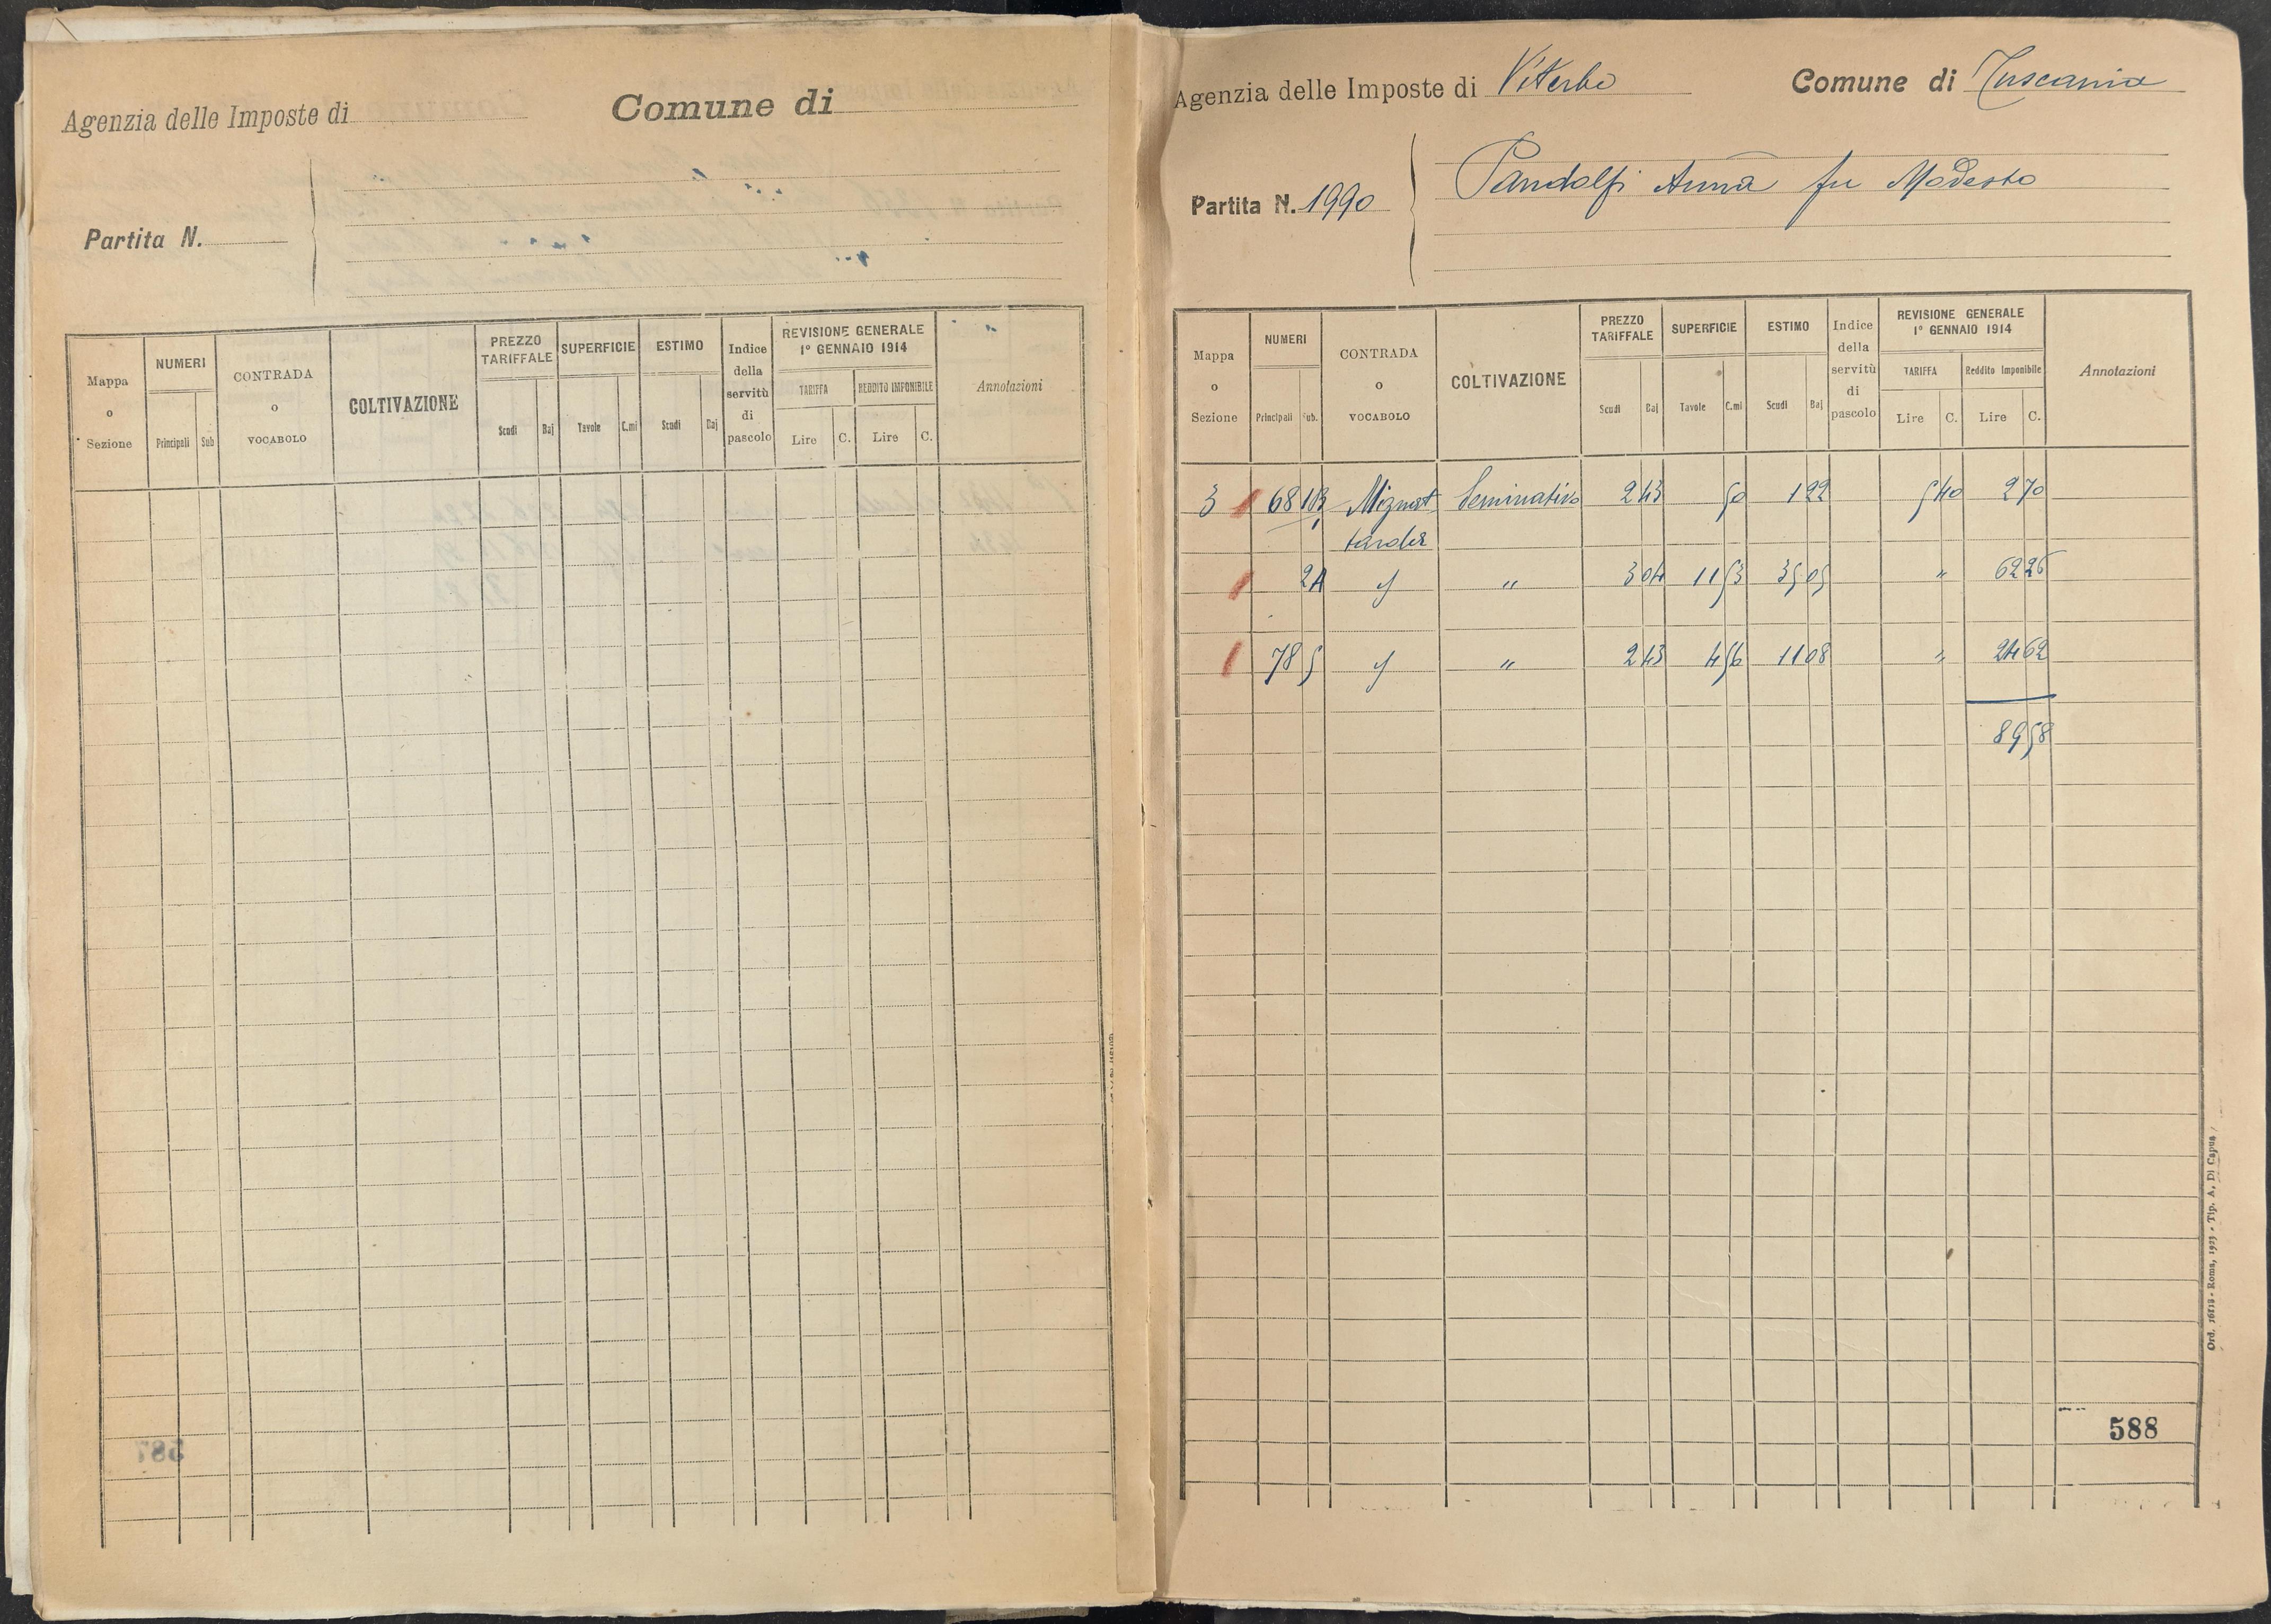 Agenzia delle Imposte di
Comune di
Partita N.
Mappa o Sezione
NUMERI
Principali Sub
CONTRADA o VOCABOLO
COLTIVAZIONE
PREZZO TARIFFALE
Scudi Baj
SUPERFICIE
Tavole C.mi
ESTIMO
Scudi Baj
Indice della servitù di pascolo
REVISIONE GENERALE
1° GENNAIO 1914
TARIFFA REDDITO IMPONIBILE
Lire C. Lire C.
Annotazioni
587
Agenzia delle Imposte di Viterbo Comune di Tuscania
Partita N. 1990
Pandolfi Anna fu Modesto
Mappa o Sezione
NUMERI
Principali Sub.
CONTRADA o VOCABOLO
COLTIVAZIONE
PREZZO TARIFFALE
Scudi Baj
SUPERFICIE
Tavole C.mi
ESTIMO
Scudi Baj
Indice della servitù di pascolo
REVISIONE GENERALE
1° GENNAIO 1914
TARIFFA Reddito Imponibile
Lire C. Lire C.
Annotazioni
3 68 Seminativo 2 43 50 1 22 5 40 2 70
2A " 3 04 11 53 35 05 " 62 26
78 5 " 2 43 4 56 11 08 " 24 62
89 58
588
Roma, 1923 - Tip. A. Di Capua